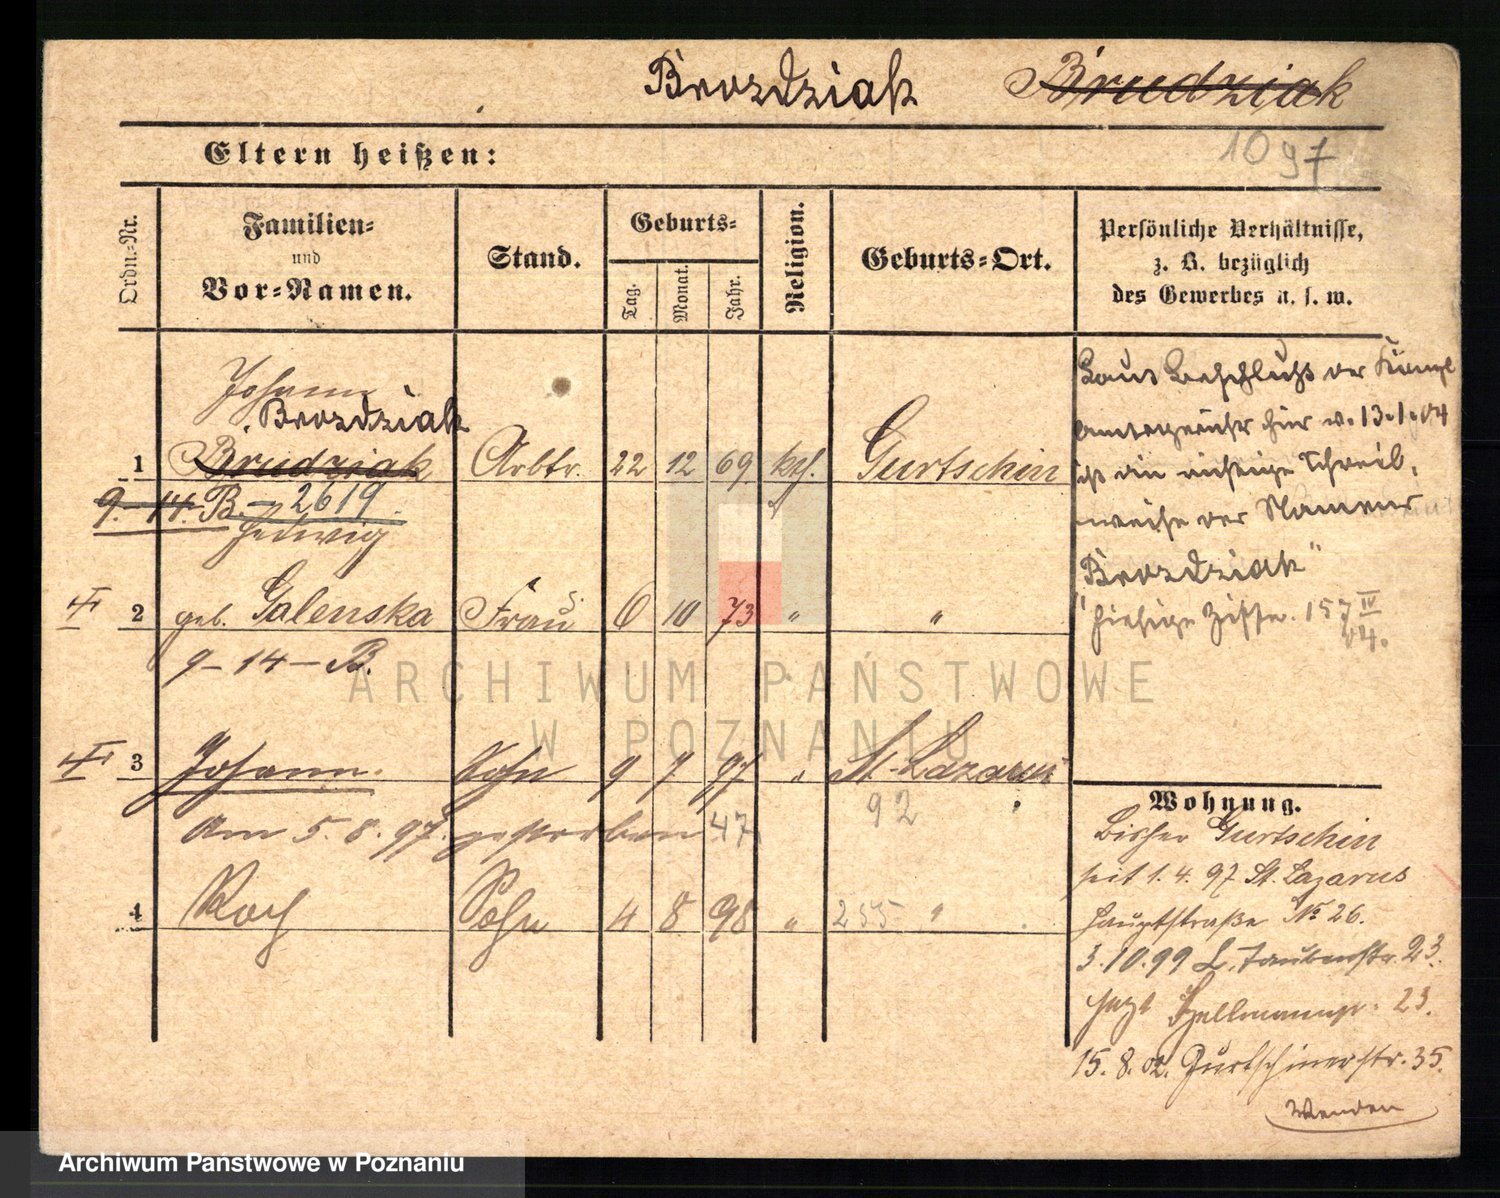 Brozdziak Brudziak
1097
Eltern heißen:
Ordn.-Nr.
Familien-
und
Vor-Namen.
Stand.
Geburts-
Tag.
Monat.
Jahr.
Religion.
Geburts-Ort.
Persönliche Verhältnisse,
z. B. bezüglich
des Gewerbes u. s. w.
Johann
Brozdziak
1 Brudziak Arbtr. 22 12 69 kth. Gurtschin
9.-14. B. - 2619.
Hedwig
2 geb. Galenska Frau 6 10 73 " "
9-14-B.
3 Johann. Sohn 9 7 97 " St. Lazarus
92
Am 5.8.97. gestorben 47
4 Roch Sohn 4 8 98 " 255 "
Laut Beschluß der Königl
Amtsgericht hier v. 13.1.04
ist die richtige Schreib-
weise der Namens
"Brozdziak"
hiesige 157 IV
04.
Wohnung.
Bisher Gurtschin
seit 1.4.97 St. Lazarus
Hauptstraße No 26.
3.10.99 L. Taubenstr. 23.
jetzt Hellmannstr. 23.
15.8.02. Gurtschinerstr. 35.
Wenden
ARCHIWUM PAŃSTWOWE
W POZNANIU
Archiwum Państwowe w Poznaniu